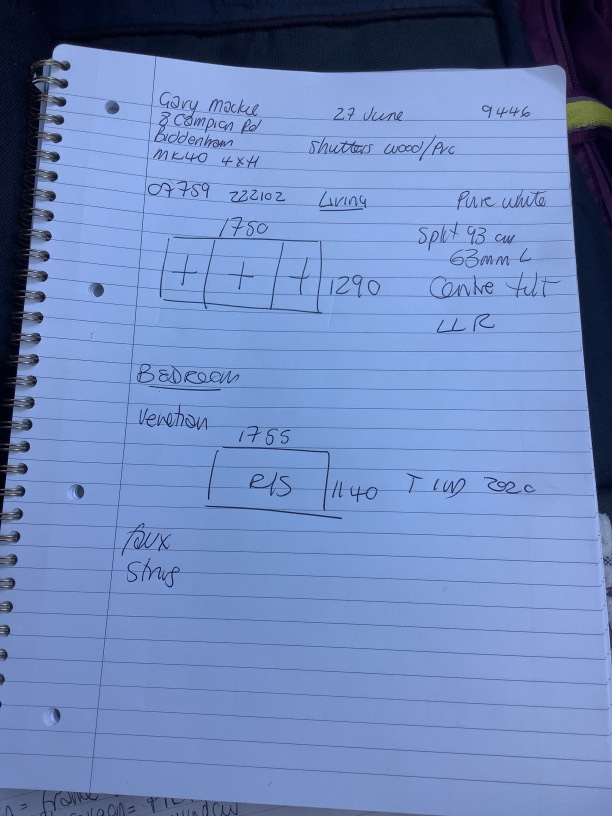 Gary Mackie 27 June 9446
8 Campion Rd
Biddenham Shutters wood/PVC
MK40 4XH
07759 222102 Living Pure white
1750 Split 93 cm
63mm L
1290 Centre tilt
LLR
BEDROOM
Venetian
1755
R/S 1140
faux
Strings